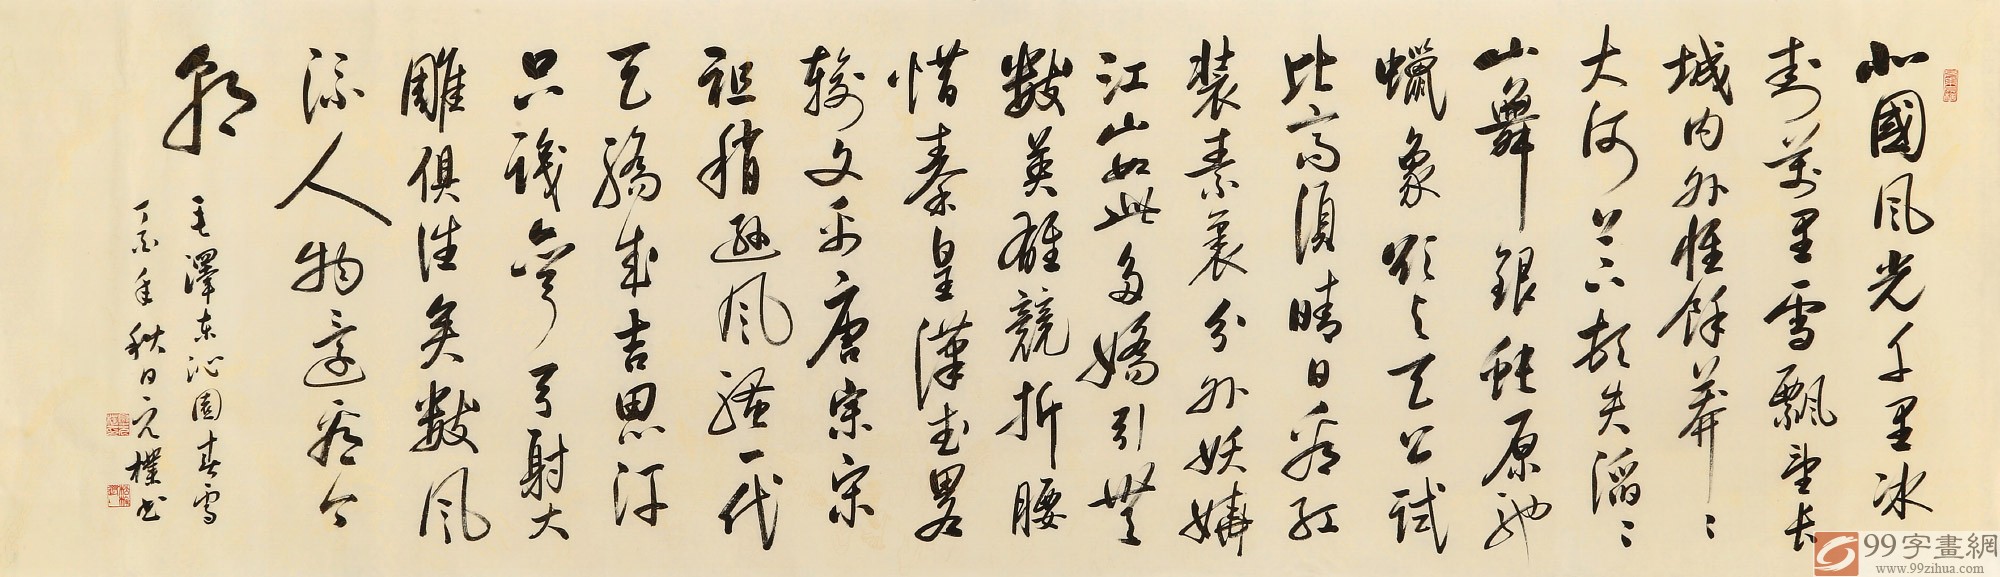 北國風光千里冰
封萬里雪飄望長
城内外惟餘莽〻
大河上下頓失滔〻
山舞銀蛇原馳
蠟象欲與天公試
比高須晴日看紅
裝素裹分外妖嬈
江山如此多嬌引無
數英雄競折腰
惜秦皇漢武畧
輸文采唐宗宋
祖稍遜風騷一代
天驕成吉思汗
只識彎弓射大
雕俱往矣數風
流人物還看今
朝
毛澤東沁園春雪
丁亥年秋日元樸書
99字畫網
www.99zihua.com